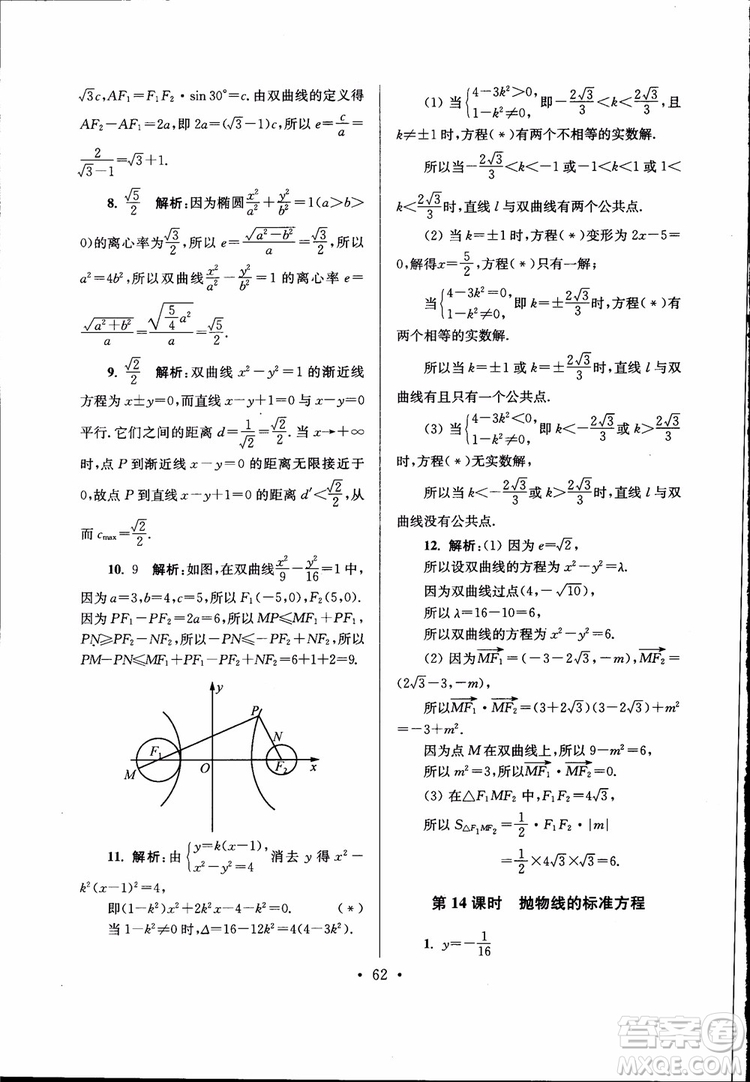 √3c,AF₁=F₁F₂·sin30°=c.由双曲线的定义得
AF₂-AF₁=2a,即2a=(√3-1)c,所以e=c/a=
2/(√3-1)=√3+1.
8. √5/2 解析:因为椭圆x²/a²+y²/b²=1(a>b>
0)的离心率为√3/2,所以e=√(a²-b²)/a=√3/2,所以
a²=4b²,所以双曲线x²/a²-y²/b²=1的离心率e=
√(a²+b²)/a=√(5/4 a²)/a=√5/2.
9. √2/2 解析:双曲线x²-y²=1的渐近线
方程为x±y=0,而直线x-y+1=0与x-y=0
平行.它们之间的距离d=1/√2=√2/2.当x→+∞
时,点P到渐近线x-y=0的距离无限接近于
0,故点P到直线x-y+1=0的距离d′<√2/2,从
而c_max=√2/2.
10. 9 解析:如图,在双曲线x²/9-y²/16=1中,
因为a=3,b=4,c=5,所以F₁(-5,0),F₂(5,0).
因为PF₁-PF₂=2a=6,所以MP≤MF₁+PF₁,
PN≥PF₂-NF₂,所以-PN≤-PF₂+NF₂,所以
PM-PN≤MF₁+PF₁-PF₂+NF₂=6+1+2=9.
y
P
N
F₁
F₂
M
O
x
11. 解析:由{y=k(x-1), x²-y²=4 消去y得x²-
k²(x-1)²=4,
即(1-k²)x²+2k²x-4-k²=0. (*)
当1-k²≠0时,Δ=16-12k²=4(4-3k²).
(1) 当{4-3k²>0, 1-k²≠0, 即-2√3/3<k<2√3/3,且
k≠±1时,方程(*)有两个不相等的实数解.
所以当-2√3/3<k<-1或-1<k<1或1<
k<2√3/3时,直线l与双曲线有两个公共点.
(2) 当k=±1时,方程(*)变形为2x-5=
0,解得x=5/2,方程(*)只有一解;
当{4-3k²=0, 1-k²≠0, 即k=±2√3/3时,方程(*)有
两个相等的实数解.
所以当k=±1或k=±2√3/3时,直线l与双
曲线有且只有一个公共点.
(3) 当{4-3k²<0, 1-k²≠0, 即k<-2√3/3或k>2√3/3
时,方程(*)无实数解.
所以当k<-2√3/3或k>2√3/3时,直线l与双
曲线没有公共点.
12. 解析:(1) 因为e=√2,
所以设双曲线的方程为x²-y²=λ.
因为双曲线过点(4,-√10),
所以λ=16-10=6.
所以双曲线的方程为x²-y²=6.
(2) 因为MF₁=(-3-2√3,-m),MF₂=
(2√3-3,-m),
所以MF₁·MF₂=(3+2√3)(3-2√3)+m²
=-3+m².
因为点M在双曲线上,所以9-m²=6,
所以m²=3,所以MF₁·MF₂=0.
(3) 在△F₁MF₂中,F₁F₂=4√3,
所以S△F₁MF₂=1/2·F₁F₂·|m|
=1/2×4√3×√3=6.
第14课时 抛物线的标准方程
1. y=-1/16
·62·
答案圈
MXQE.COM